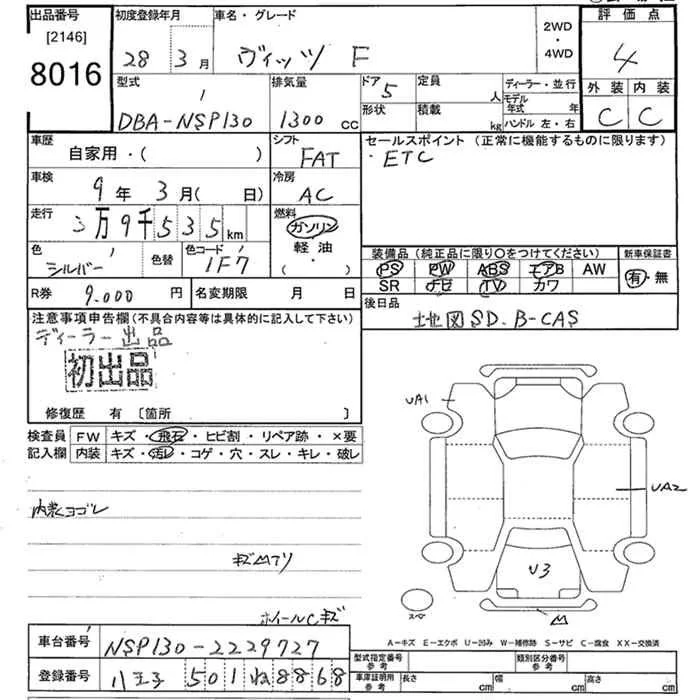 出品番号 初度登録年月 車名・グレード 評価点
[2146]
8016
28 3月 ヴィッツ F
2WD
・
4WD
4
型式 排気量 ドア 5 定員 人 ディーラー・並行 外装 内装
DBA-NSP130 1300cc 形状 積載 kg モデル年式 年 ハンドル 左・右 C C
車歴 自家用・( ) シフト FAT
セールスポイント (正常に機能するものに限ります)
・ETC
車検 9年3月( 日) 冷房 AC
走行 3万9千535km 燃料 ガソリン
軽油
( )
色 シルバー 色替 色コード 1F7
装備品 (純正品に限り○をつけてください) 新車保証書
PS PW ABS エアB AW 有・無
SR ナビ TV カワ
R券 9.000円 名変期限 月 日
後日品 地図SD. B-CAS
注意事項申告欄(不具合内容等は具体的に記入して下さい)
ディーラー出品
初出品
修復歴 有 [箇所 ]
検査員 FW キズ・飛石・ヒビ割・リペア跡・×要
記入欄 内装 キズ・汚レ・コゲ・穴・スレ・キレ・破レ
UA1
UA2
U3
内装ヨゴレ
ホイールCキズ
A-キズ E-エクボ U-凹み W-補修跡 S-サビ C-腐食 XX-交換済
車台番号 NSP130-2229727
登録番号 八王子 501 ね 8868
型式指定番号 参考 類別区分番号 参考
車庫証明用 参考 長さ cm 幅 cm 高さ cm